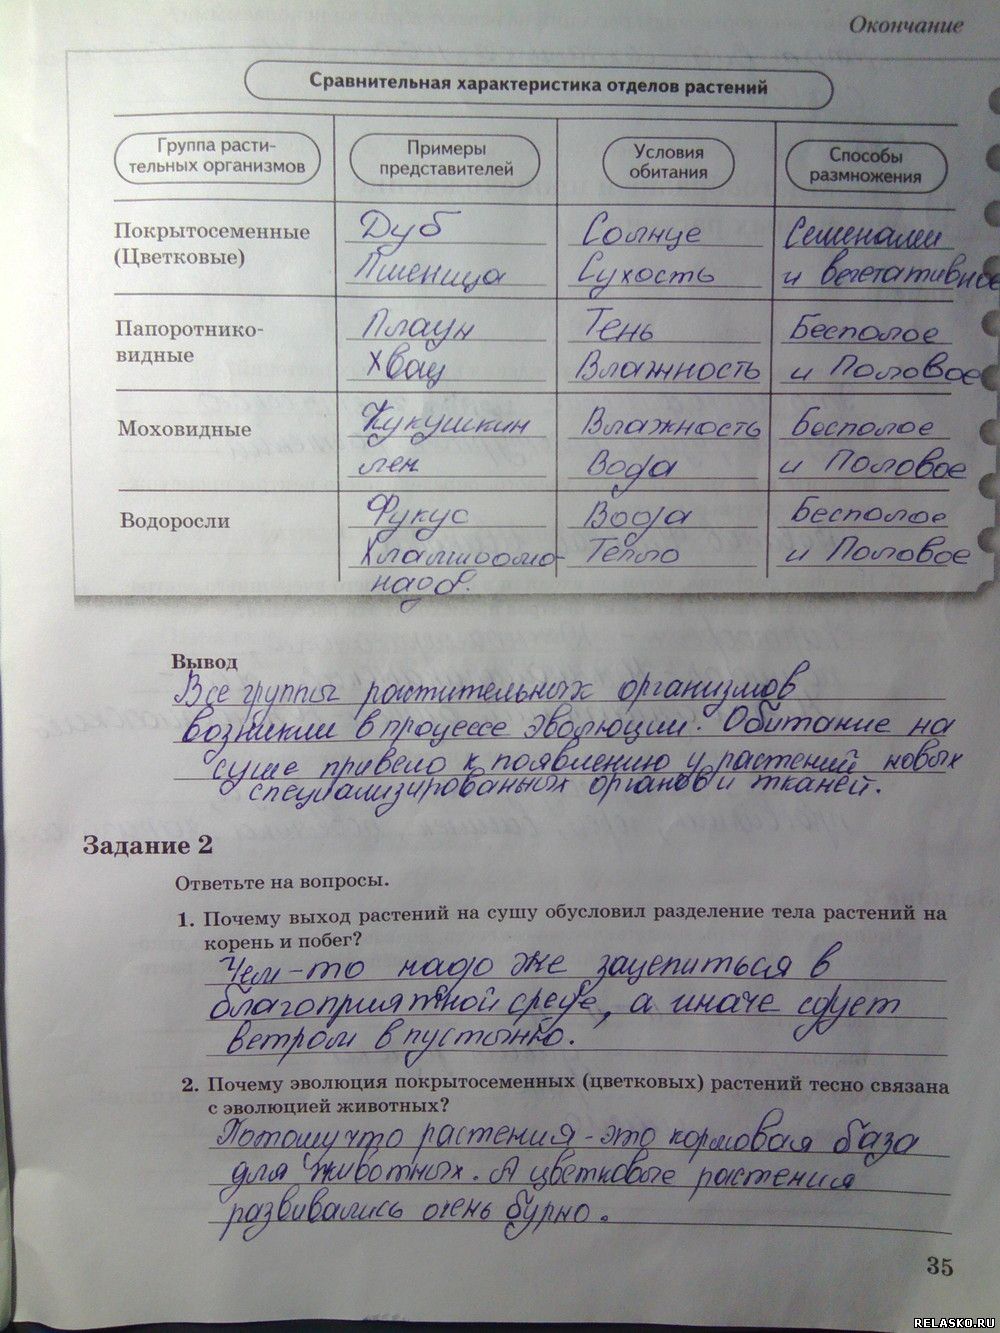 Окончание
Сравнительная характеристика отделов растений
Группа расти-
тельных организмов
Примеры
представителей
Условия
обитания
Способы
размножения
Покрытосеменные
(Цветковые)
Дуб
Пшеница
Солнце
Сухость
Семенами
и вегетативное
Папоротнико-
видные
Плаун
Хвощ
Тень
Влажность
Бесполое
и Половое
Моховидные
Кукушкин
лен
Влажность
Вода
Бесполое
и Половое
Водоросли
Фукус
Хламидомо-
надов.
Вода
Тепло
Бесполое
и Половое
Вывод
Все группы растительных организмов
возникли в процессе эволюции. Обитание на
суше привело к появлению у растений новых
специализированных органов и тканей.
Задание 2
Ответьте на вопросы.
1. Почему выход растений на сушу обусловил разделение тела растений на
корень и побег?
Чем-то надо же зацепиться в
благоприятной среде, а иначе сдует
ветром в пустыню.
2. Почему эволюция покрытосеменных (цветковых) растений тесно связана
с эволюцией животных?
Потому что растения - это кормовая база
для животных. А цветковые растения
развивались очень бурно.
35
RELASKO.RU